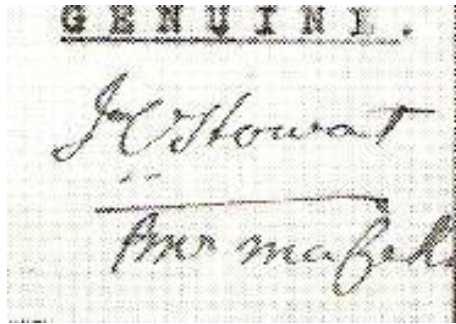 GENUINE.
JVHowat
Pmr mafek